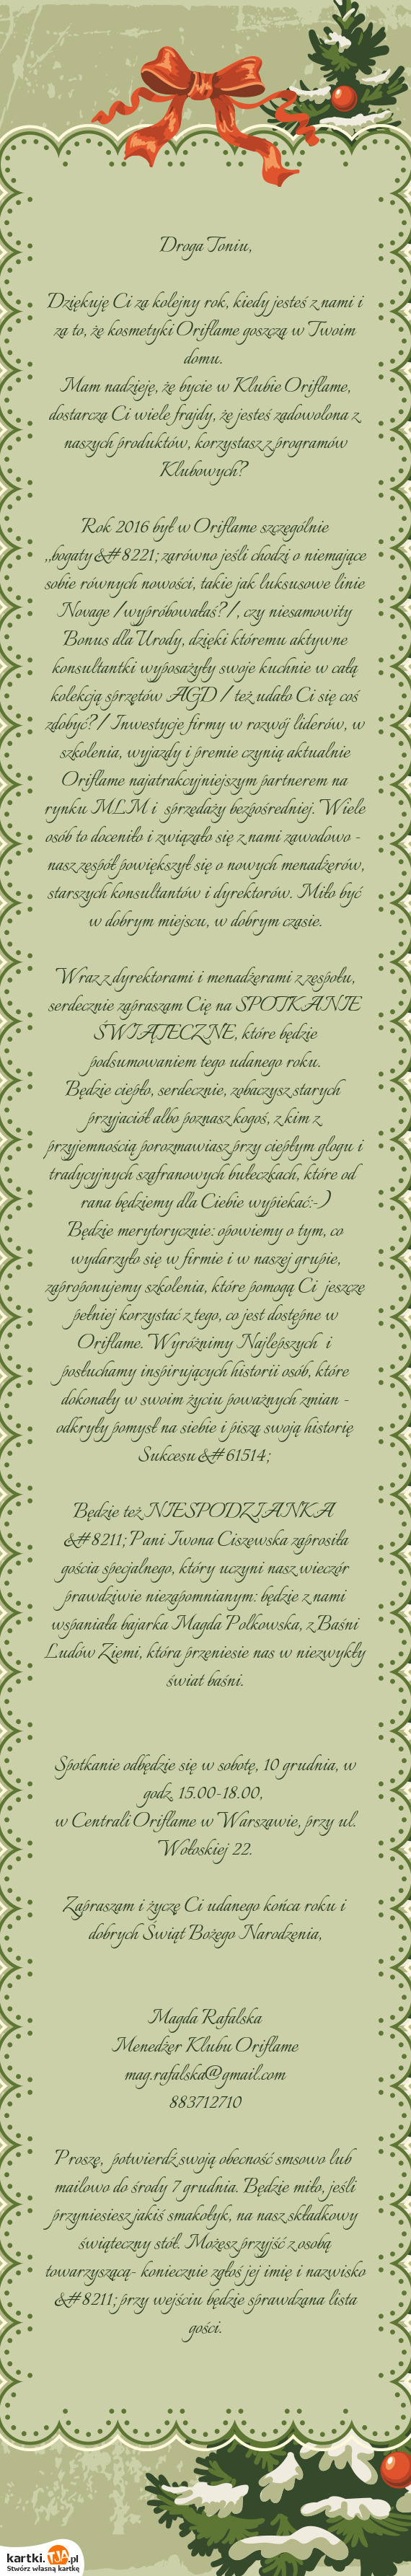 Droga Toniu,
Dziękuję Ci za kolejny rok, kiedy jesteś z nami i
za to, że kosmetyki Oriflame goszczą w Twoim
domu.
Mam nadzieję, że bycie w Klubie Oriflame,
dostarcza Ci wiele frajdy, że jesteś zadowolona z
naszych produktów, korzystasz z programów
Klubowych?
Rok 2016 był w Oriflame szczególnie
,,bogaty&#8221; zarówno jeśli chodzi o niemające
sobie równych nowości, takie jak luksusowe linie
Novage /wypróbowałaś?/, czy niesamowity
Bonus dla Urody, dzięki któremu aktywne
konsultantki wyposażyły swoje kuchnie w całą
kolekcję sprzętów AGD / też udało Ci się coś
zdobyć?/ Inwestycje firmy w rozwój liderów, w
szkolenia, wyjazdy i premie czynią aktualnie
Oriflame najatrakcyjniejszym partnerem na
rynku MLM i sprzedaży bezpośredniej. Wiele
osób to doceniło i związało się z nami zawodowo -
nasz zespół powiększył się o nowych menadżerów,
starszych konsultantów i dyrektorów. Miło być
w dobrym miejscu, w dobrym czasie.
Wraz z dyrektorami i menadżerami z zespołu,
serdecznie zapraszam Cię na SPOTKANIE
ŚWIĄTECZNE, które będzie
podsumowaniem tego udanego roku.
Będzie ciepło, serdecznie, zobaczysz starych
przyjaciół albo poznasz kogoś, z kim z
przyjemnością porozmawiasz przy ciepłym glogu i
tradycyjnych szafranowych bułeczkach, które od
rana będziemy dla Ciebie wypiekać:-)
Będzie merytorycznie: opowiemy o tym, co
wydarzyło się w firmie i w naszej grupie,
zaproponujemy szkolenia, które pomogą Ci jeszcze
pełniej korzystać z tego, co jest dostępne w
Oriflame. Wyróżnimy Najlepszych i
posłuchamy inspirujących historii osób, które
dokonały w swoim życiu poważnych zmian -
odkryły pomysł na siebie i piszą swoją historię
Sukcesu &#61514;
Będzie też NIESPODZIANKA
&#8211; Pani Iwona Ciszewska zaprosiła
gościa specjalnego, który uczyni nasz wieczór
prawdziwie niezapomnianym: będzie z nami
wspaniała bajarka Magda Polkowska, z Baśni
Ludów Ziemi, która przeniesie nas w niezwykły
świat baśni.
Spotkanie odbędzie się w sobotę, 10 grudnia, w
godz. 15.00-18.00,
w Centrali Oriflame w Warszawie, przy ul.
Wołoskiej 22.
Zapraszam i życzę Ci udanego końca roku i
dobrych Świąt Bożego Narodzenia,
Magda Rafalska
Menedżer Klubu Oriflame
mag.rafalska@gmail.com
883712710
Proszę, potwierdź swoją obecność smsowo lub
mailowo do środy 7 grudnia. Będzie miło, jeśli
przyniesiesz jakiś smakołyk, na nasz składkowy
świąteczny stół. Możesz przyjść z osobą
towarzyszącą- koniecznie zgłoś jej imię i nazwisko
&#8211; przy wejściu będzie sprawdzana lista
gości.
kartki.TJA.pl
Stwórz własną kartkę